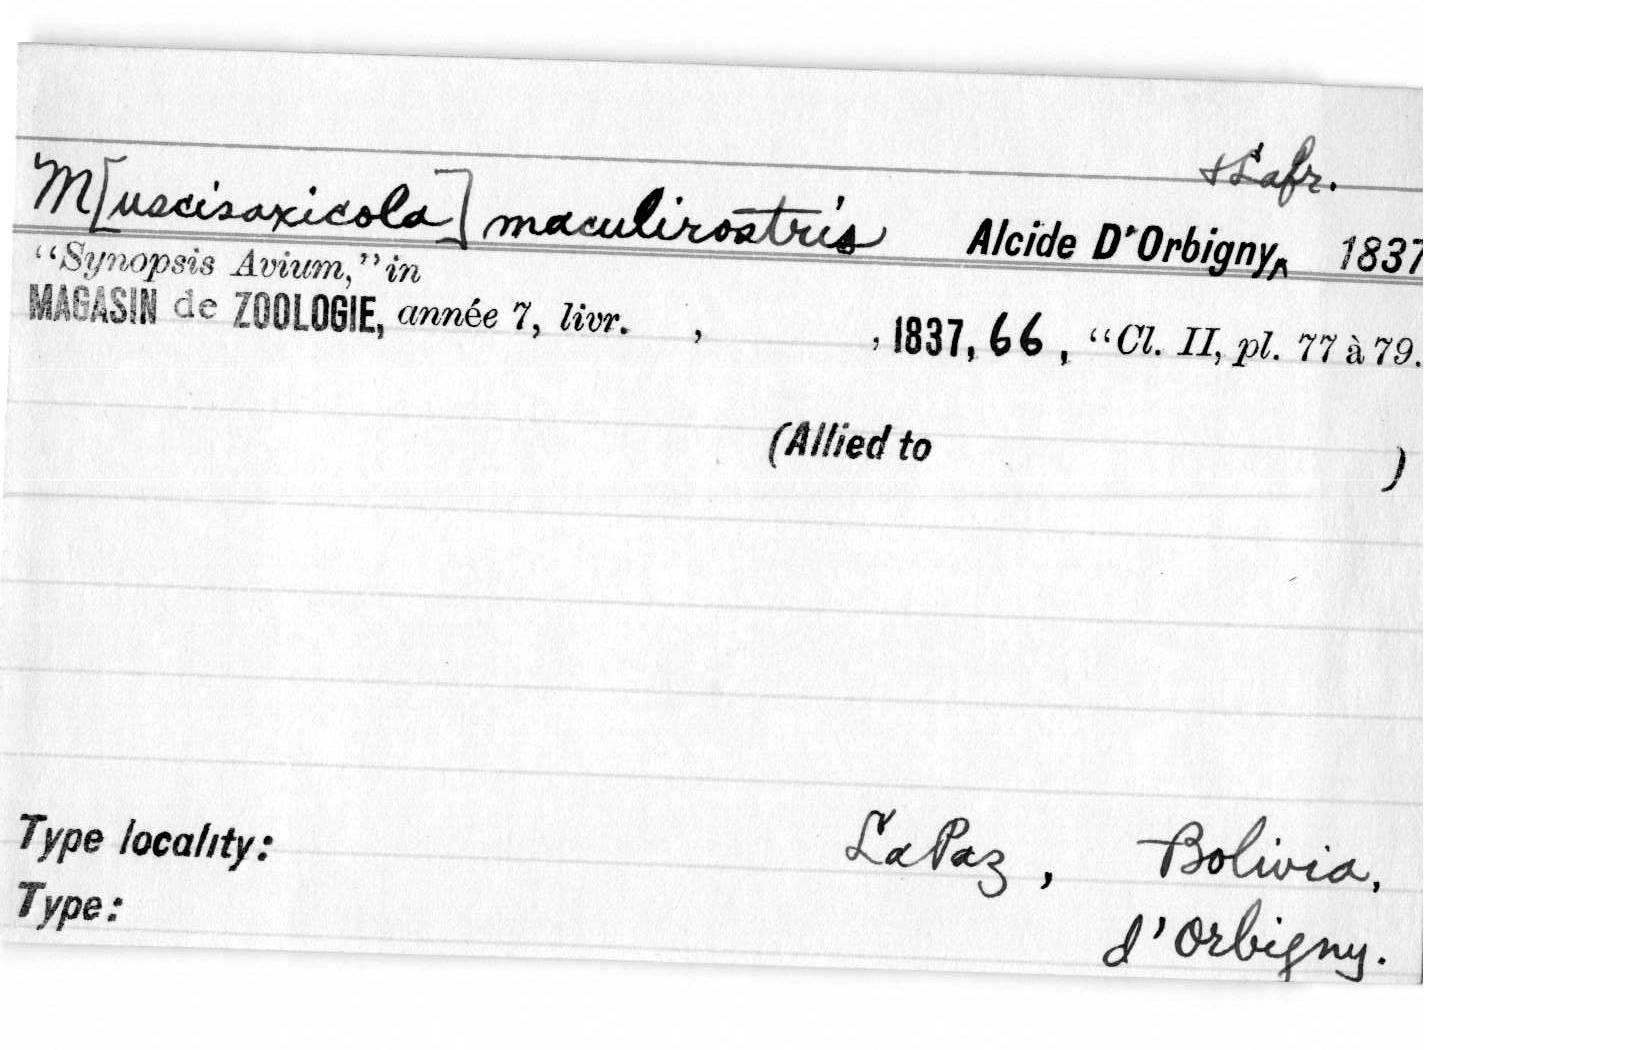 & Lafr.
M[uscisaxicola] maculirostris Alcide D'Orbigny‸ 1837
“Synopsis Avium,” in
MAGASIN de ZOOLOGIE, année 7, livr. , , 1837, 66, “Cl. II, pl. 77 à 79.
(Allied to )
Type locality: La Paz, Bolivia,
Type: d'Orbigny.